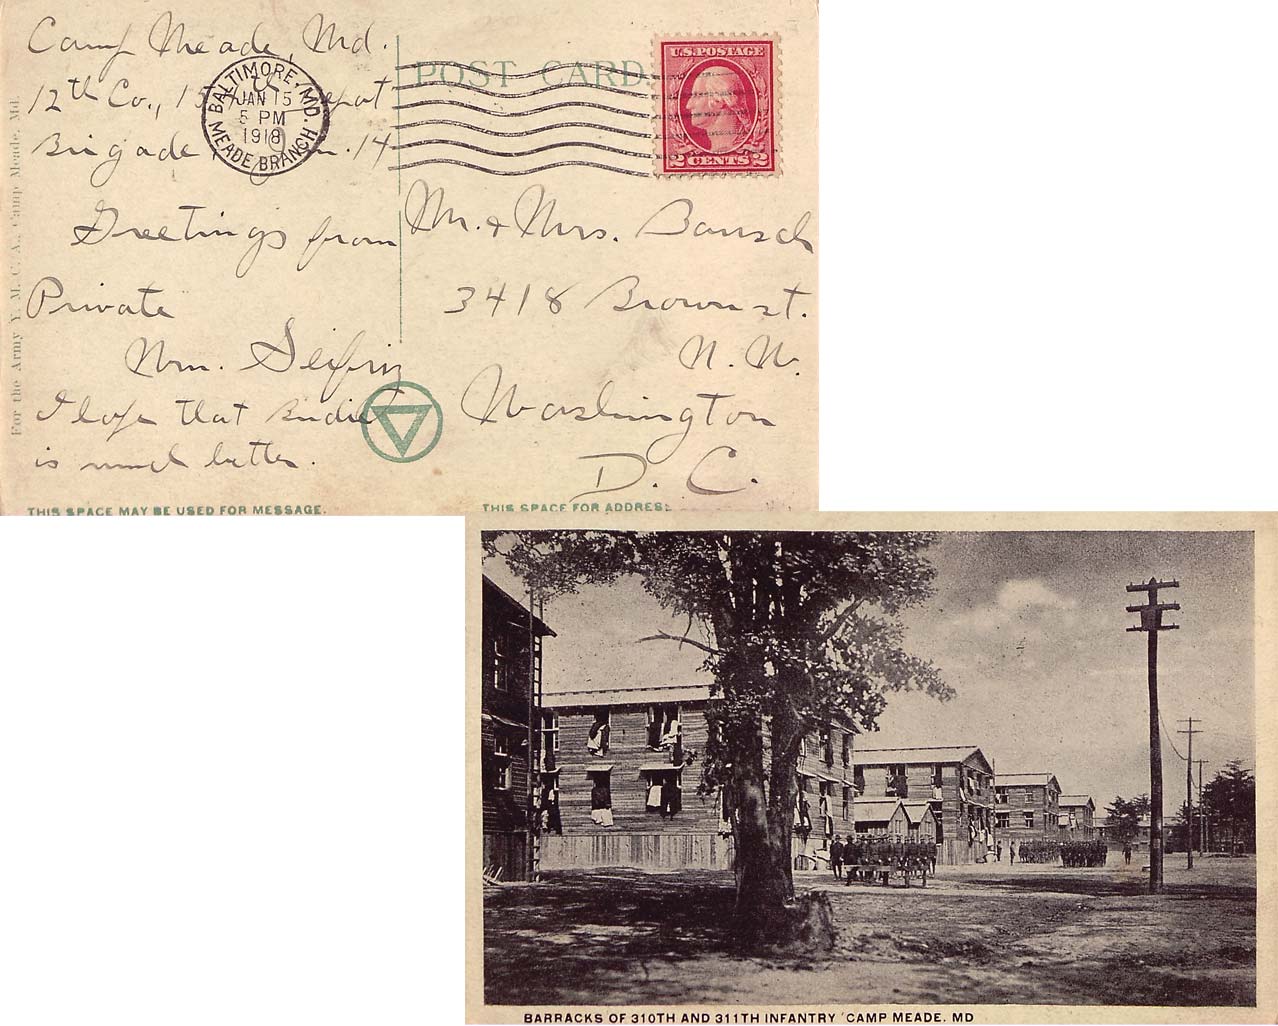 Camp Meade, Md.
12th Co., Depot
Brigade 14
Greetings from
Private
Wm. Seifriz
I hope that
is much better.
POST CARD
BALTIMORE, MD.
JAN 15
5 PM
1918
MEADE BRANCH
U.S. POSTAGE
2 CENTS 2
Mr. & Mrs. Bausch
3418 Brown st.
N. W.
Washington
D. C.
For the Army Y. M. C. A., Camp Meade, Md.
THIS SPACE MAY BE USED FOR MESSAGE.
THIS SPACE FOR ADDRESS
BARRACKS OF 310TH AND 311TH INFANTRY CAMP MEADE. MD